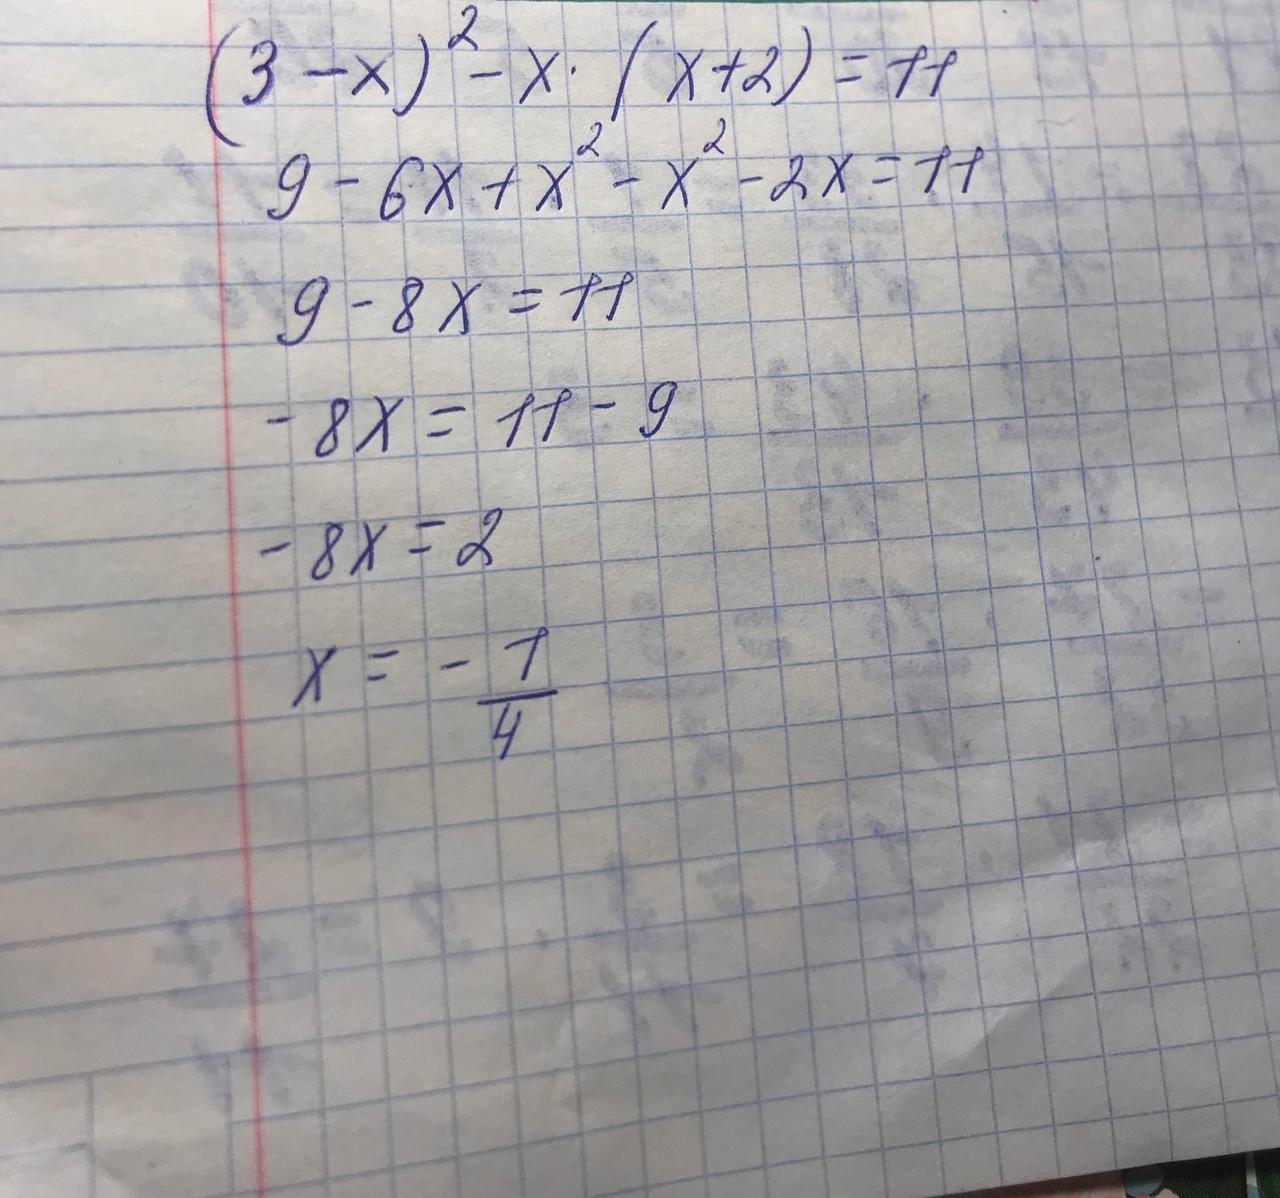 (3-x)² - x · (x+2) = 11
9 - 6x + x² - x² - 2x = 11
9 - 8x = 11
- 8x = 11 - 9
- 8x = 2
x = - 1/4